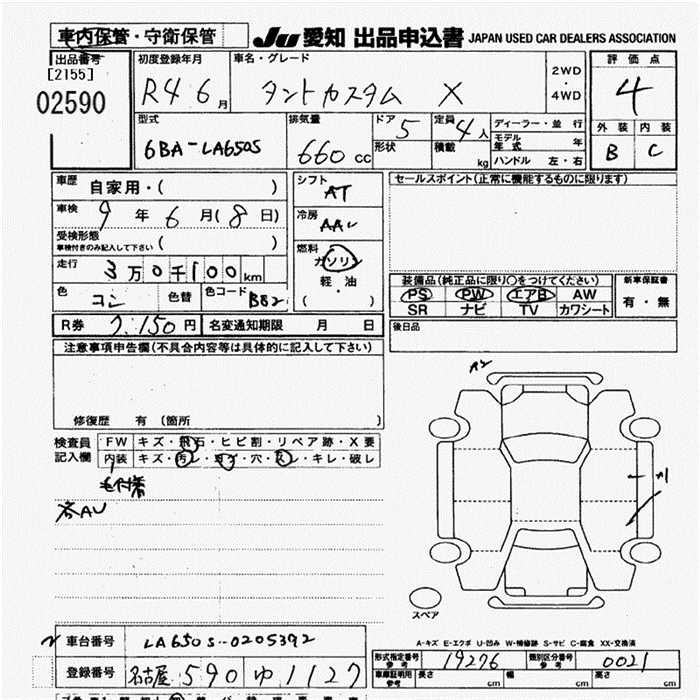 車内保管・守衛保管
JU 愛知 出品申込書 JAPAN USED CAR DEALERS ASSOCIATION
出品番号
[2155]
02590
初度登録年月
R4 6月
車名・グレード
タントカスタム X
2WD
・
4WD
評価点
4
外装 内装
B C
型式
6BA-LA650S
排気量
660 cc
ドア 5
形状
定員 4人
積載 kg
ディーラー・並行
モデル年式 年
ハンドル 左・右
車歴 自家用・( )
車検 9年 6月(8日)
受検形態
車検付きのみ記入して下さい ( )
走行 3万0千100km
色 コン 色替 色コード B82
R券 7,150円 名変通知期限 月 日
シフト
AT
冷房
AAC
燃料
ガソリン
軽・油
・
( )
セールスポイント(正常に機能するものに限ります)
装備品(純正品に限り○をつけてください)
PS PW エアB AW
SR ナビ TV カワシート
新車保証書
有・無
後日品
注意事項申告欄(不具合内容等は具体的に記入して下さい)
修復歴 有(箇所 )
検査員
記入欄
FW キズ・飛石・ヒビ割・リペア跡・X要
内装 キズ・汚レ・コゲ・穴・スレ・キレ・破レ
毛付着
A2
A1
スペア
A-キズ E-エクボ U-凹み W-補修跡 S-サビ C-腐食 XX-交換済
車台番号 LA650S-0205392
登録番号 名古屋 590 ゆ 1127
形式指定番号
参考
19276
類別区分番号
参考
0021
車庫証明用
参考
長さ cm 幅 cm 高さ cm